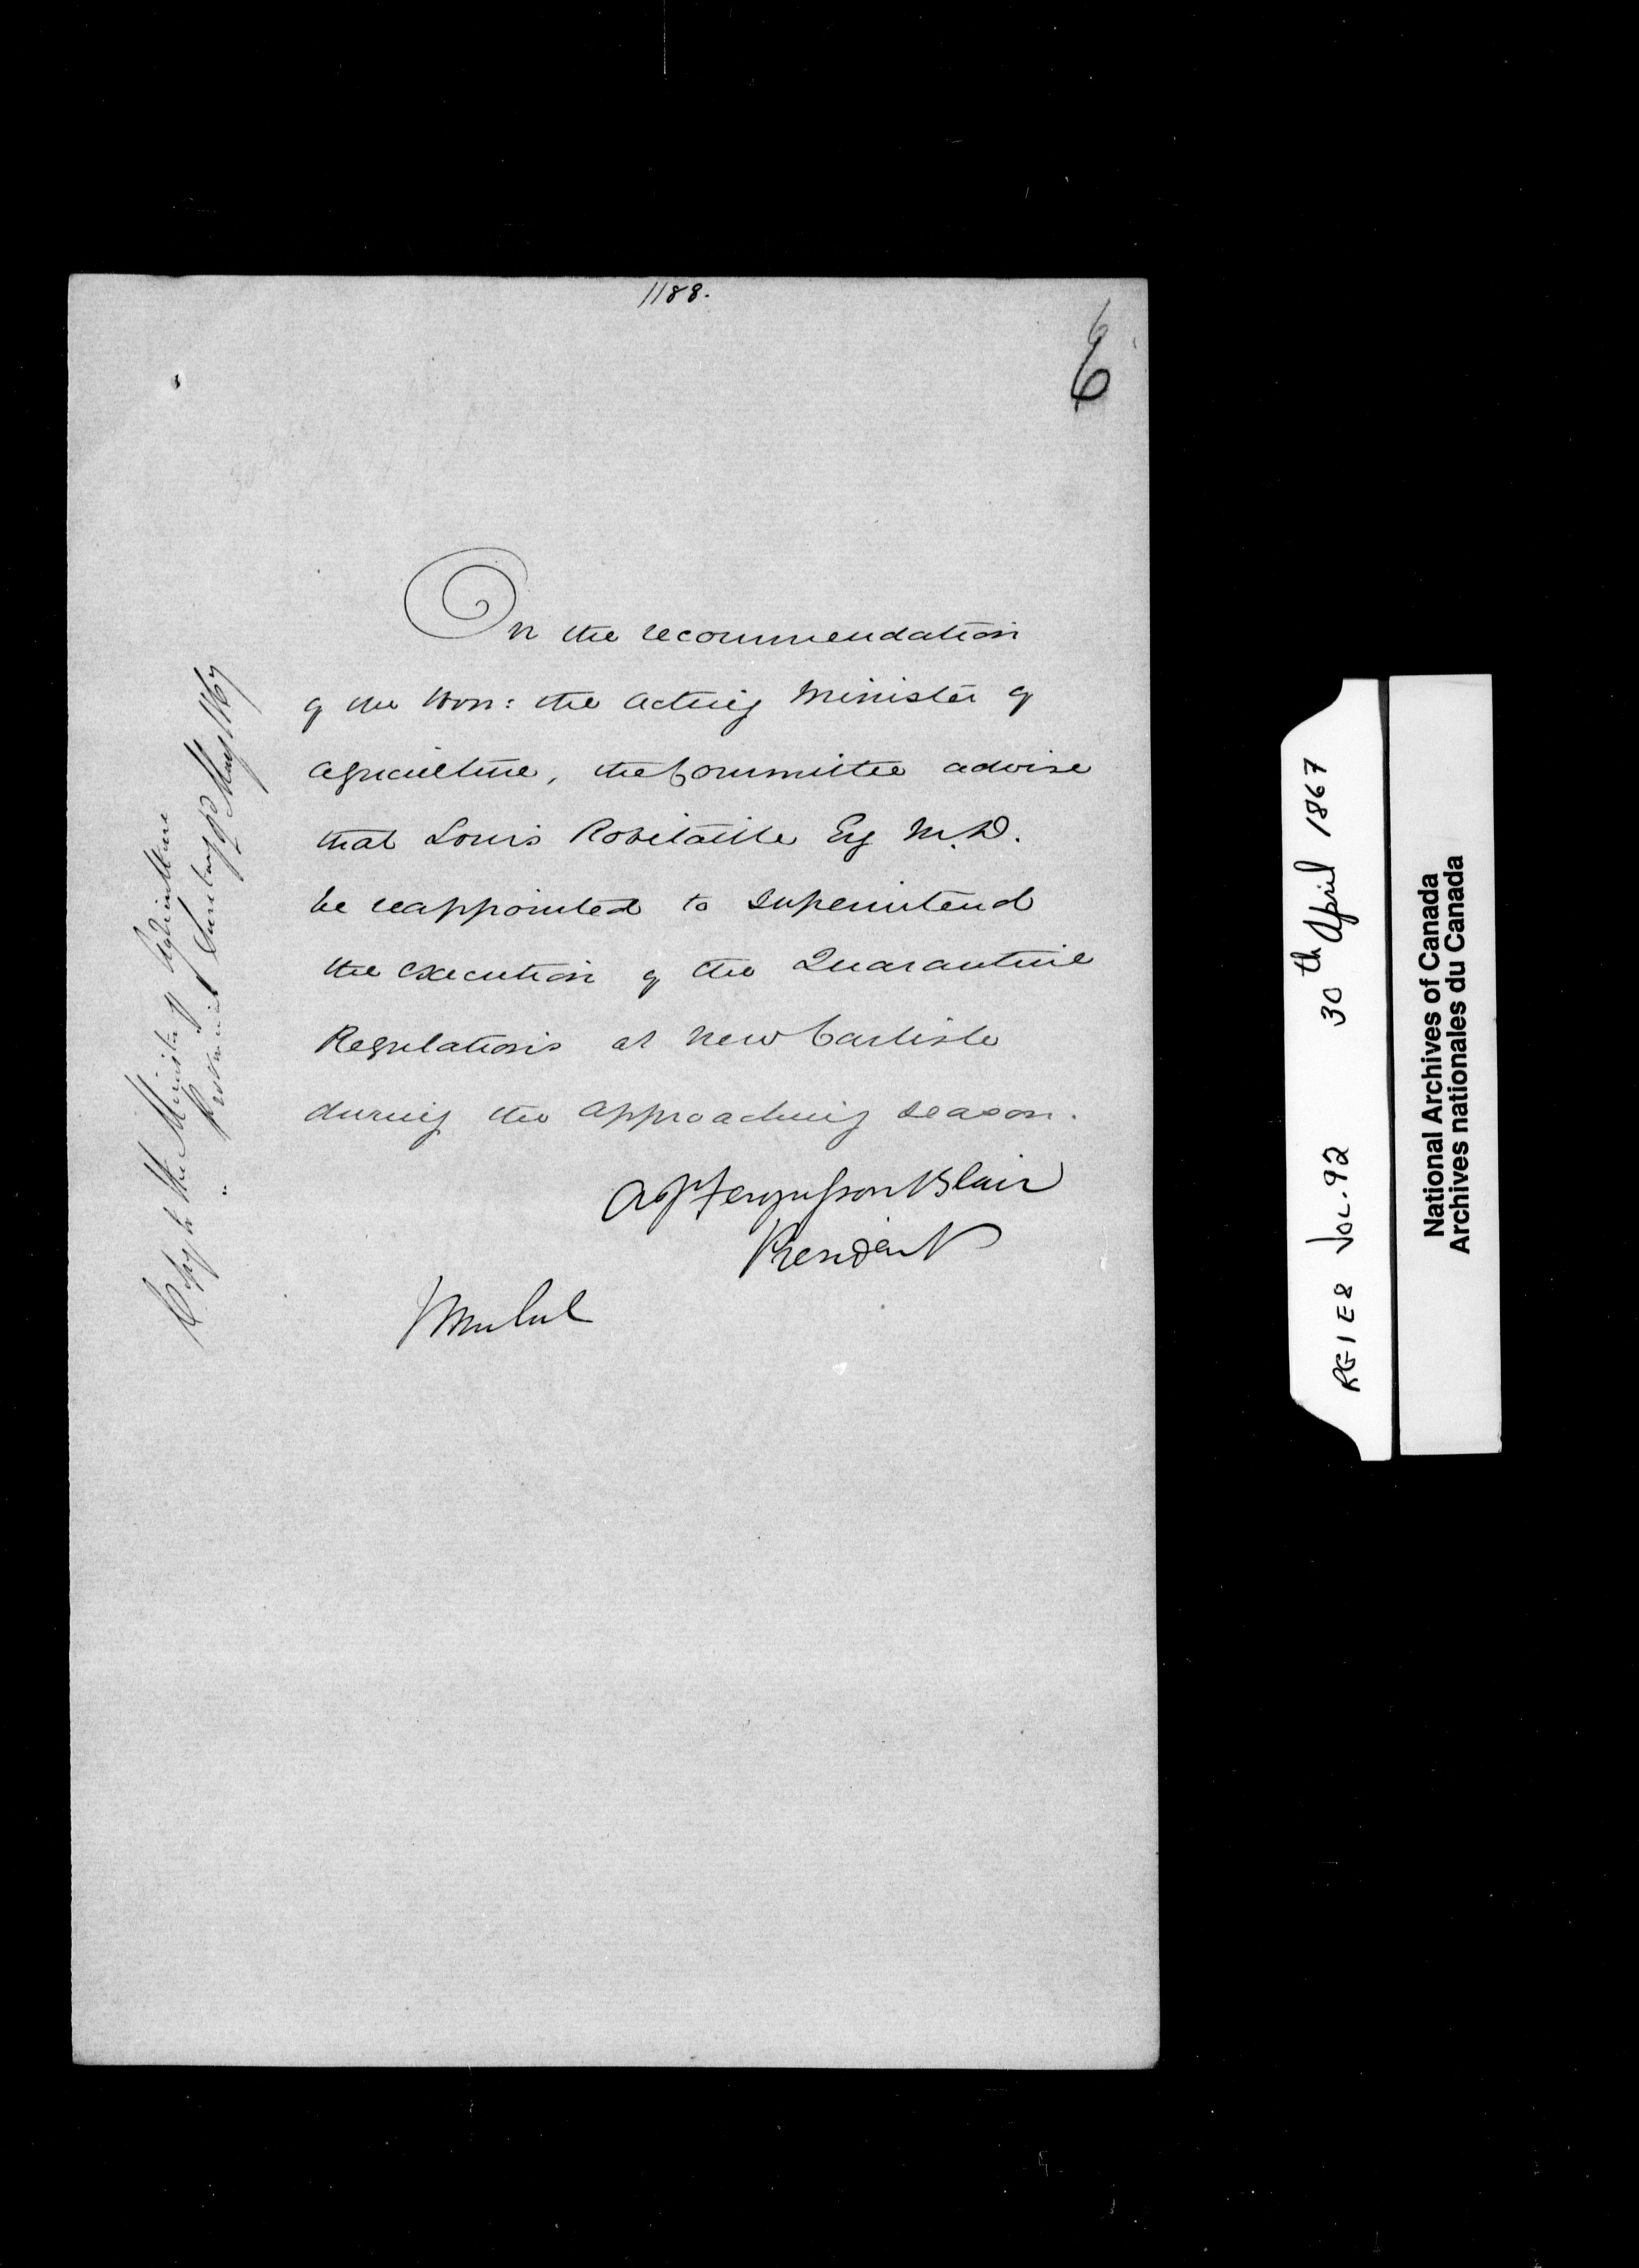 1188.
6
6
On the recommendation
of the Hon: the Acting Minister of
Agriculture, the Committee advise
that Louis Robitaille Esq M.D.
be reappointed to superintend
the execution of the Quarantine
Regulations at New Carlisle
during the approaching season.
A J Fergusson Blair
President
Copy to the Minister of Agriculture
" Provincial Secretary 2d May 1867
RG1 E8 VOL. 92 30th April 1867
National Archives of Canada
Archives nationales du Canada